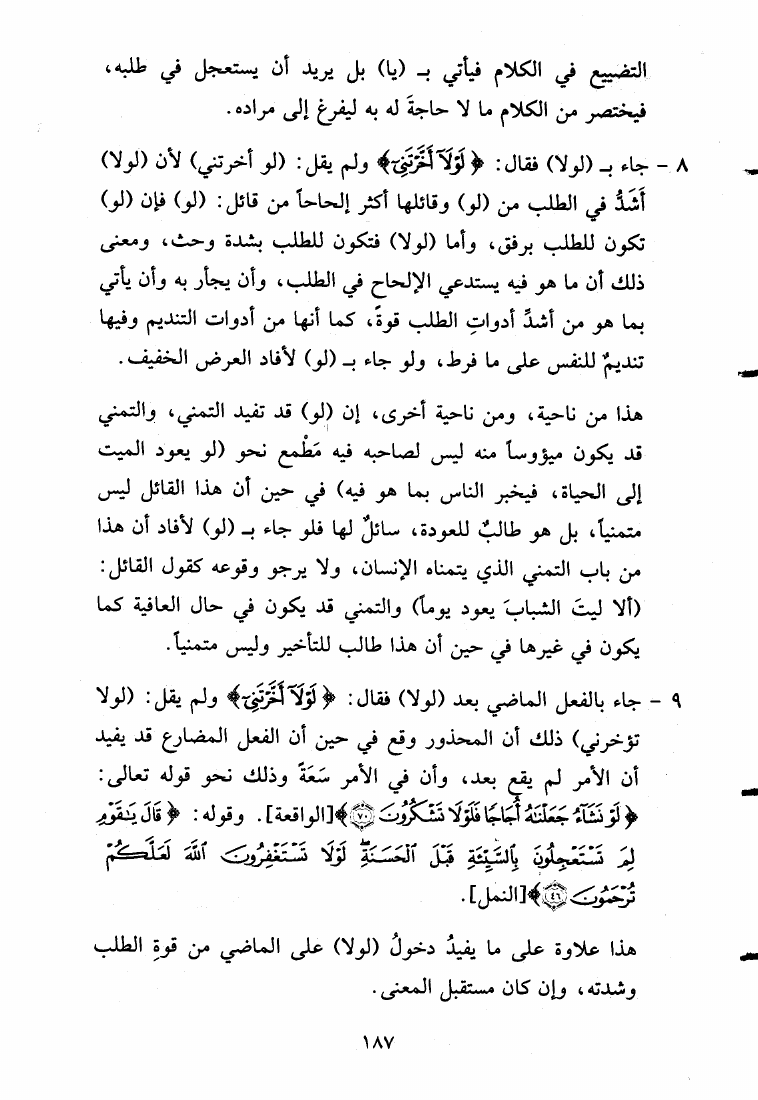 التضييع في الكلام فيأتي بـ (يا) بل يريد أن يستعجل في طلبه،
فيختصر من الكلام ما لا حاجةَ له به ليفرغ إلى مراده.
٨ - جاء بـ (لولا) فقال: ﴿لَوْلَآ أَخَّرْتَنِىٓ﴾ ولم يقل: (لو أخرتني) لأن (لولا)
أَشَدُّ في الطلب من (لو) وقائلها أكثر إلحاحاً من قائل: (لو) فإن (لو)
تكون للطلب برفق، وأما (لولا) فتكون للطلب بشدة وحث، ومعنى
ذلك أن ما هو فيه يستدعي الإلحاح في الطلب، وأن يجأر به وأن يأتي
بما هو من أشدِّ أدواتِ الطلب قوةً، كما أنها من أدوات التنديم وفيها
تنديمٌ للنفس على ما فرط، ولو جاء بـ (لو) لأفاد العرض الخفيف.
هذا من ناحية، ومن ناحية أخرى، إن (لو) قد تفيد التمني، والتمني
قد يكون ميؤوساً منه ليس لصاحبه فيه مَطْمع نحو (لو يعود الميت
إلى الحياة، فيخبر الناس بما هو فيه) في حين أن هذا القائل ليس
متمنياً، بل هو طالبٌ للعودة، سائلٌ لها فلو جاء بـ (لو) لأفاد أن هذا
من باب التمني الذي يتمناه الإنسان، ولا يرجو وقوعه كقول القائل:
(ألا ليتَ الشبابَ يعود يوماً) والتمني قد يكون في حال العافية كما
يكون في غيرها في حين أن هذا طالب للتأخير وليس متمنياً.
٩ - جاء بالفعل الماضي بعد (لولا) فقال: ﴿لَوْلَآ أَخَّرْتَنِىٓ﴾ ولم يقل: (لولا
تؤخرني) ذلك أن المحذور وقع في حين أن الفعل المضارع قد يفيد
أن الأمر لم يقع بعد، وأن في الأمر سَعَةً وذلك نحو قوله تعالى:
﴿لَوْ نَشَآءُ جَعَلْنَٰهُ أُجَاجًا فَلَوْلَا تَشْكُرُونَ ٧٠﴾[الواقعة]. وقوله: ﴿قَالَ يَٰقَوْمِ
لِمَ تَسْتَعْجِلُونَ بِٱلسَّيِّئَةِ قَبْلَ ٱلْحَسَنَةِ ۖ لَوْلَا تَسْتَغْفِرُونَ ٱللَّهَ لَعَلَّكُمْ
تُرْحَمُونَ ٤٦﴾[النمل].
هذا علاوة على ما يفيدُ دخولُ (لولا) على الماضي من قوةِ الطلب
وشدته، وإن كان مستقبل المعنى.
١٨٧